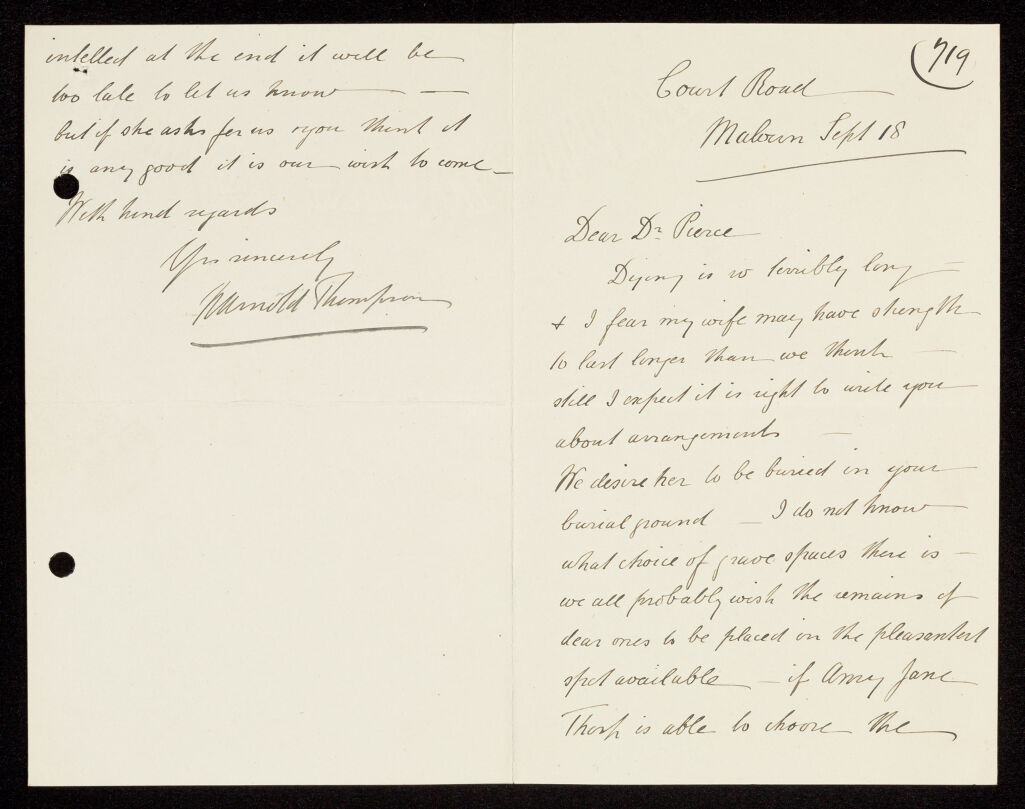 719
Court Road
Malvern Sept 18
Dear Dr Pierce
Dying is so terribly long —
& I fear my wife may have strength
to last longer than we think —
still I expect it is right to write you
about arrangements —
We desire her to be buried in your
burial ground — I do not know
what choice of grave spaces there is —
we all probably wish the remains of
dear ones to be placed in the pleasantest
spot available — if Amy Jane
Thorp is able to choose the
intellect at the end it will be
too late to let us know — —
but if she asks for us & you think it
is any good it is our wish to come —
With kind regards
Yrs sincerely
Arnold Thompson